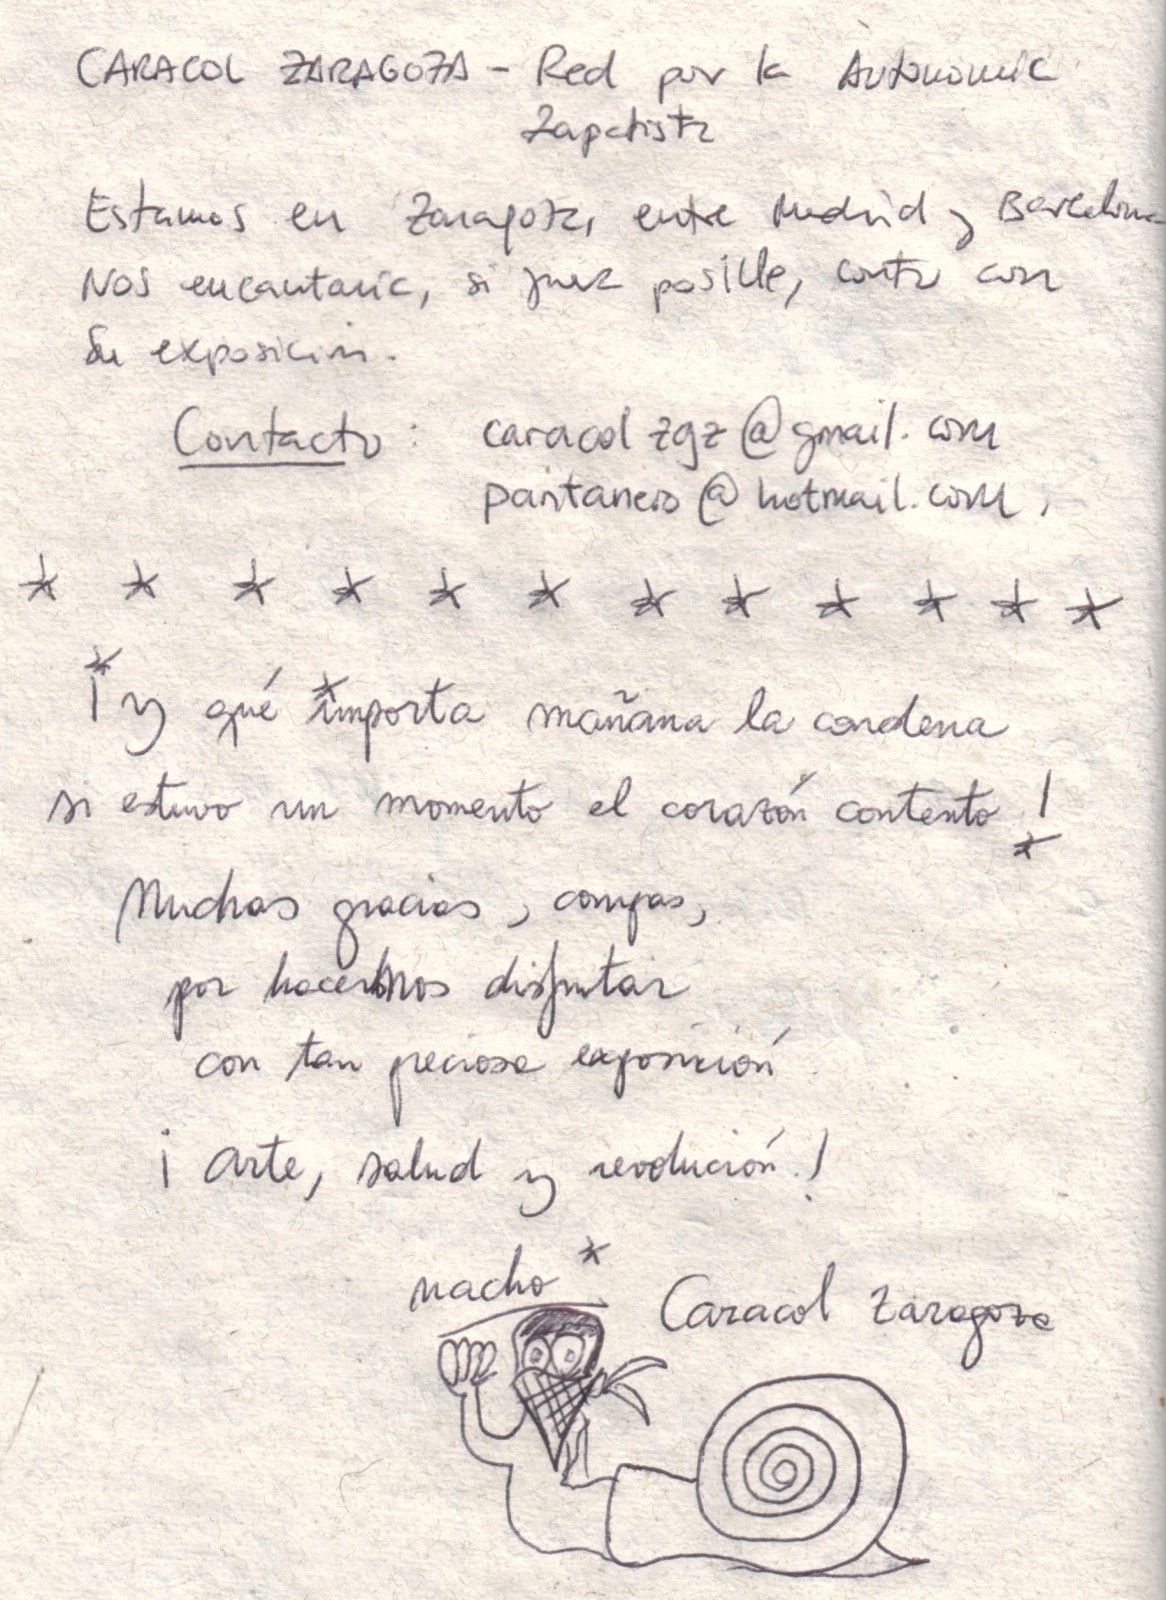 CARACOL ZARAGOZA - Red por la Autonomía
Zapatista
Estamos en Zaragoza, entre Madrid y Barcelona
Nos encantaría, si fuera posible, contar con
su exposición.
Contacto: caracolzgz@gmail.com
pantanero@hotmail.com.
* * * * * * * * * * * *
¡Y qué importa mañana la condena
si estuvo un momento el corazón contento!
Muchas gracias, compas,
por hacernos disfrutar
con tan preciosa exposición
¡Arte, salud y revolución!
nacho *
Caracol Zaragoza